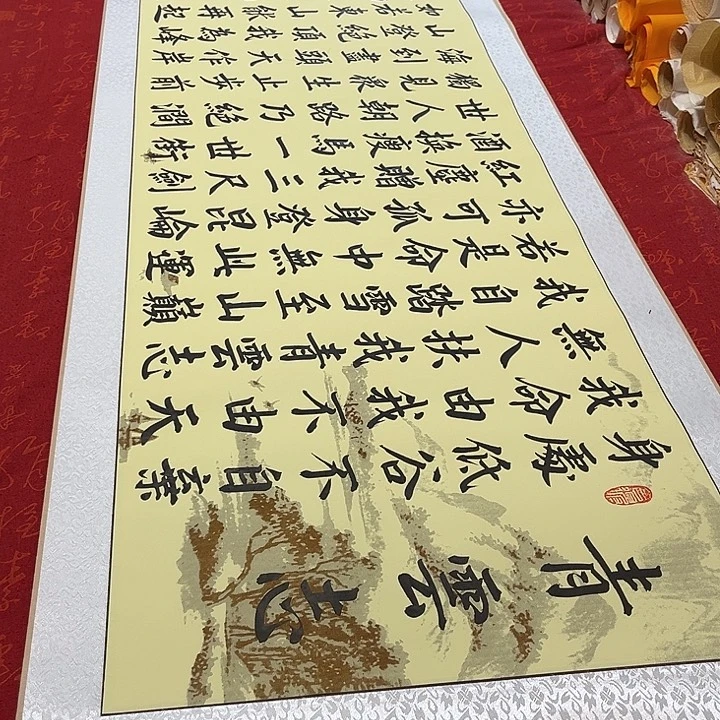 青雲志
身處低谷不自棄
我命由我不由天
無人扶我青雲志
我自踏雪至山巔
若是命中無此運
亦可孤身登昆崘
紅塵贈我三尺劍
酒換瘦馬一世街
世人朝路乃絕澗
獨見泉生止步前
海到盡頭天作岸
山登絕頂我為峰
如若東山然再起